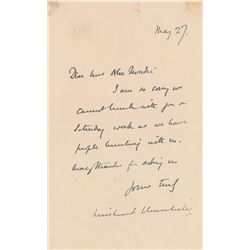 May 27.
Dear Mrs
I am so sorry we
cannot lunch with you on
Saturday week as we have
people lunching with us.
Many thanks for asking us
Yours truly
Churchill